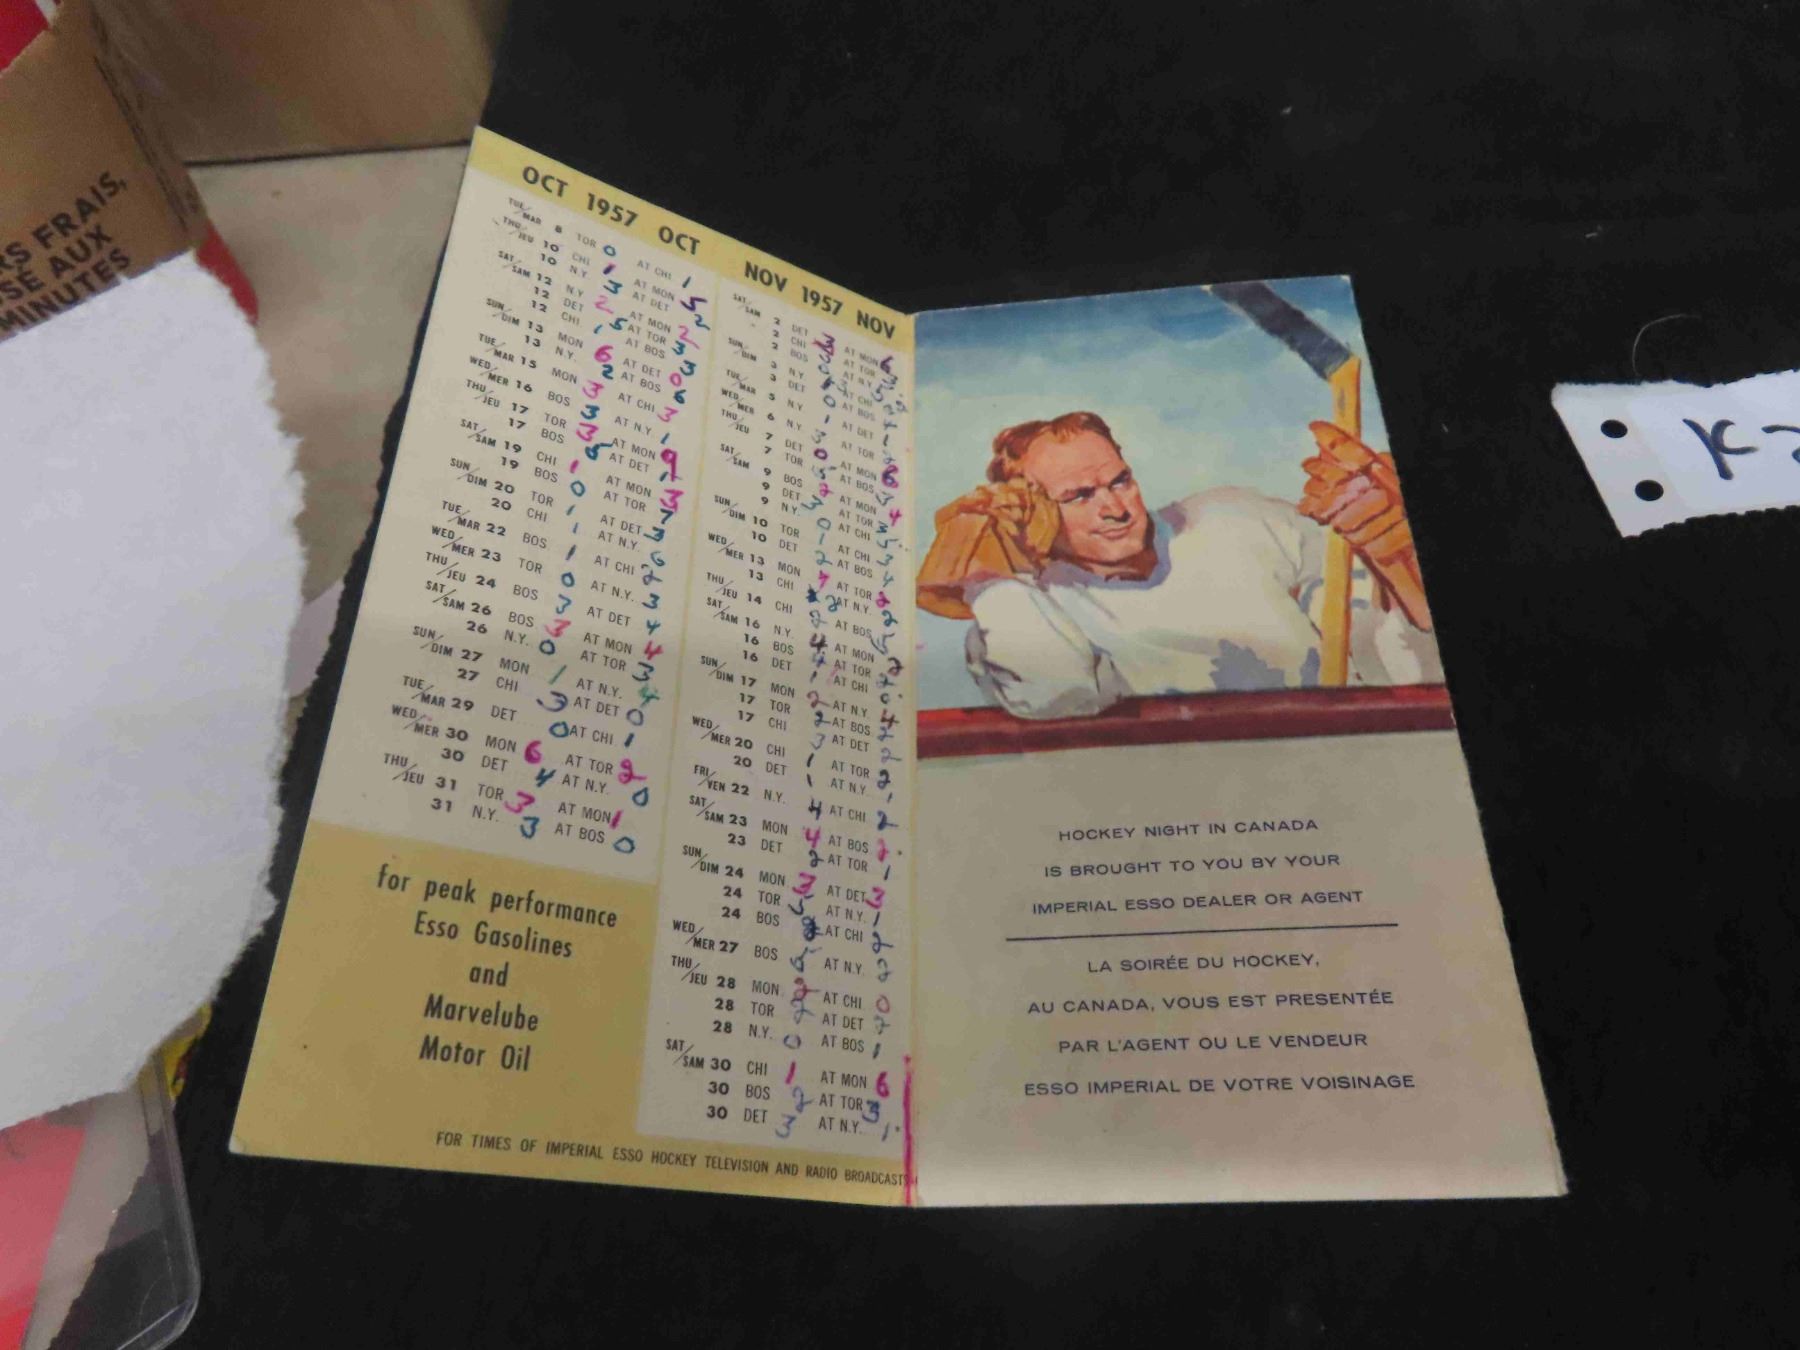 RS FRAIS,
SE AUX
MINUTES
OCT 1957 OCT
TUE/MAR 8 TOR 0 AT CHI 1
THU/JEU 10 CHI 1 AT MON 5
10 N.Y. 3 AT DET 2
SAT/SAM 12 N.Y. 2 AT MON 2
12 DET 5 AT TOR 3
12 CHI 1 AT BOS 3
SUN/DIM 13 MON 6 AT DET 0
13 N.Y. 2 AT BOS 6
TUE/MAR 15 MON 3 AT CHI 3
WED/MER 16 BOS 3 AT N.Y. 1
THU/JEU 17 TOR 3 AT MON 9
17 BOS AT DET
SAT/SAM 19 CHI 1 AT MON 3
19 BOS 0 AT TOR 7
SUN/DIM 20 TOR 1 AT DET 3
20 CHI 1 AT N.Y. 6
TUE/MAR 22 BOS 1 AT CHI 2
WED/MER 23 TOR 0 AT N.Y. 3
THU/JEU 24 BOS 3 AT DET 4
SAT/SAM 26 BOS 3 AT MON 4
26 N.Y. 0 AT TOR 3
SUN/DIM 27 MON 1 AT N.Y. 4
27 CHI 3 AT DET 0
TUE/MAR 29 DET 0 AT CHI 1
WED/MER 30 MON 6 AT TOR 2
30 DET 4 AT N.Y. 0
THU/JEU 31 TOR 3 AT MON 1
31 N.Y. 3 AT BOS 0
for peak performance
Esso Gasolines
and
Marvelube
Motor Oil
NOV 1957 NOV
SAT/SAM 2 DET AT MON 6
2 CHI AT TOR
2 BOS AT N.Y.
SUN/DIM 3 N.Y. AT CHI
3 DET AT BOS
TUE/MAR 5 N.Y. AT DET
WED/MER 6 N.Y. AT TOR
THU/JEU 7 DET 0 AT MON 6
7 TOR AT BOS
SAT/SAM 9 BOS 2 AT MON 4
9 DET 3 AT TOR 3
9 N.Y. AT CHI
SUN/DIM 10 TOR AT CHI
10 DET AT BOS
WED/MER 13 MON AT TOR
13 CHI AT N.Y.
THU/JEU 14 CHI AT BOS
SAT/SAM 16 N.Y. 4 AT MON
16 BOS AT TOR
16 DET 1 AT CHI
SUN/DIM 17 MON 2 AT N.Y. 4
17 TOR 2 AT BOS 2
17 CHI 3 AT DET
WED/MER 20 CHI 1 AT TOR 2
20 DET 1 AT N.Y. 1
FRI/VEN 22 N.Y. 4 AT CHI 2
SAT/SAM 23 MON 4 AT BOS 2
23 DET 2 AT TOR 1
SUN/DIM 24 MON 3 AT DET 3
24 TOR AT N.Y. 1
24 BOS AT CHI 2
WED/MER 27 BOS AT N.Y.
THU/JEU 28 MON AT CHI 0
28 TOR 2 AT DET 2
28 N.Y. 0 AT BOS 1
SAT/SAM 30 CHI 1 AT MON 6
30 BOS 2 AT TOR 3
30 DET 3 AT N.Y. 1
FOR TIMES OF IMPERIAL ESSO HOCKEY TELEVISION AND RADIO BROADCASTS
HOCKEY NIGHT IN CANADA
IS BROUGHT TO YOU BY YOUR
IMPERIAL ESSO DEALER OR AGENT
LA SOIRÉE DU HOCKEY,
AU CANADA, VOUS EST PRESENTÉE
PAR L'AGENT OU LE VENDEUR
ESSO IMPERIAL DE VOTRE VOISINAGE